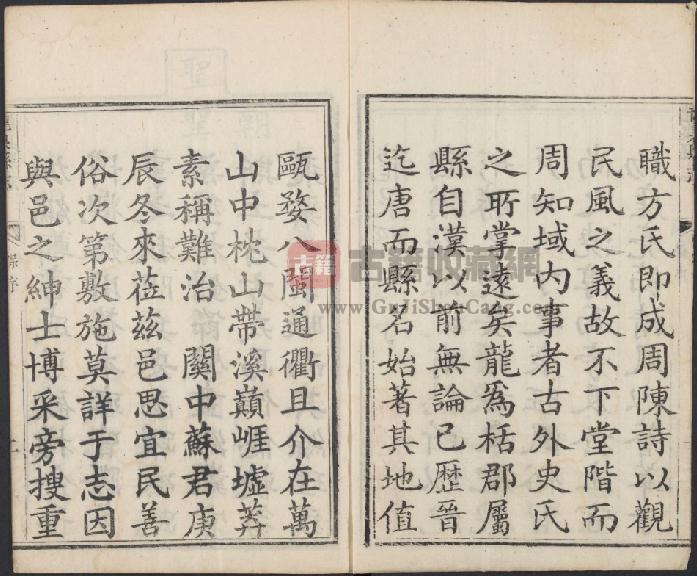 職方氏即成周陳詩以觀
民風之義故不下堂階而
周知域內事者古外史氏
之所掌遠矣龍爲栝郡屬
縣自漢以前無論已歷晉
迄唐而縣名始著其地值
甌婺八閩通衢且介在萬
山中枕山帶溪巔崕墟莽
素稱難治 關中蘇君庚
辰冬來莅茲邑思宜民善
俗次第敷施莫詳于志因
與邑之紳士博采旁搜重
古籍
古籍收藏網
www.GuJiShouCang.com
聖